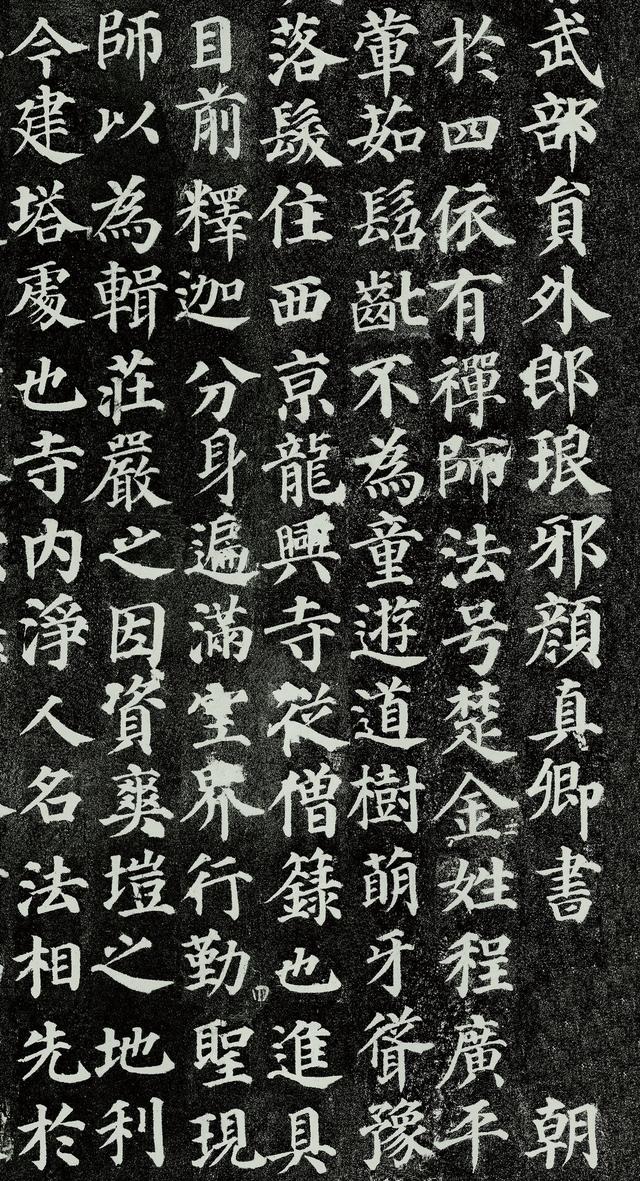 武部貟外郎琅邪顏真卿書 朝
於四依有禪師法号楚金姓程廣平
葷茹髫齔不為童遊道樹萌牙聳豫
落髮住西亰龍興寺從僧籙也進具
目前釋迦分身遍滿空界行勤聖現
師以為輯莊嚴之因資爽塏之地利
今建塔處也寺内淨人名法相先於